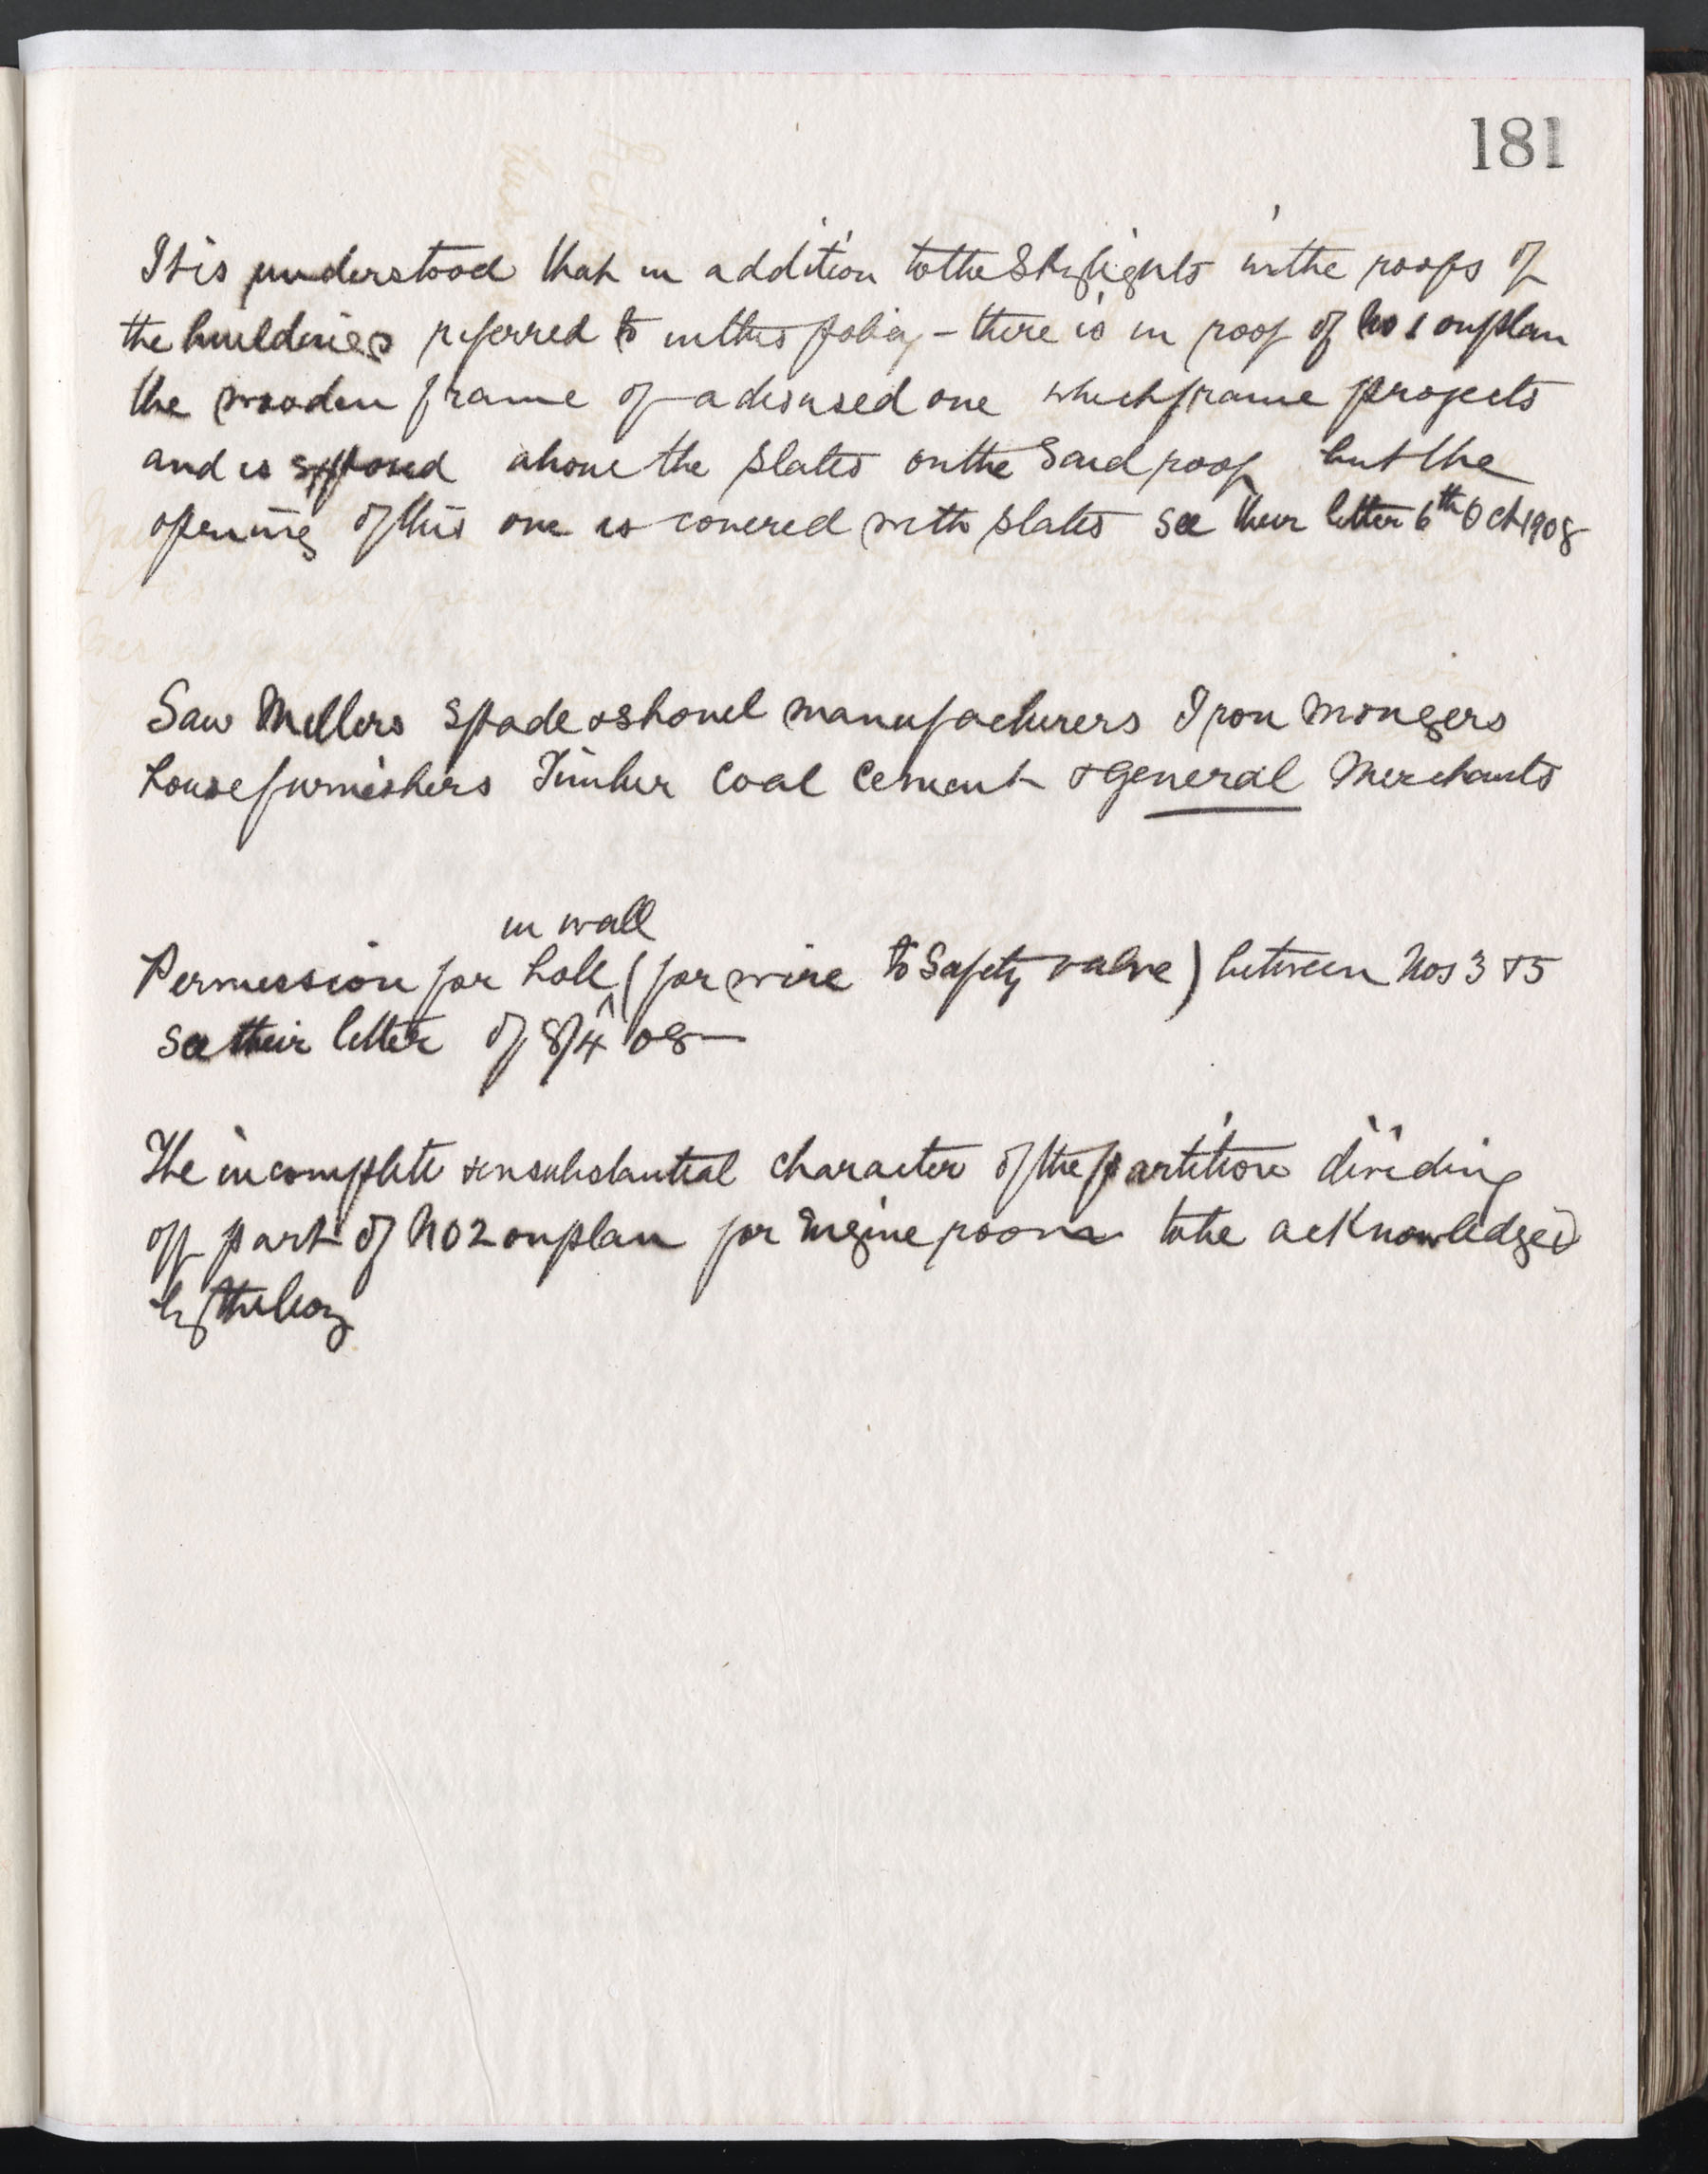 181
It is understood that in addition to the Skylights in the roofs of
the buildings referred to in this policy - there is in roof of No 1 on plan
the wooden frame of a disused one which frame projects
and is exposed above the slates on the said roof but the
opening of this one is covered with slates see their letter 6th Oct 1908
Saw Millers Spade & Shovel manufacturers Iron mongers
House furnishers Timber Coal Cement & General Merchants
in wall
Permission for hole ^ (for wire to Safety valve) between Nos 3 & 5
see their letter of 8/4 08
The incomplete & insubstantial character of the partition dividing
off part of No 2 on plan for Engine room to be acknowledged
by the Coy